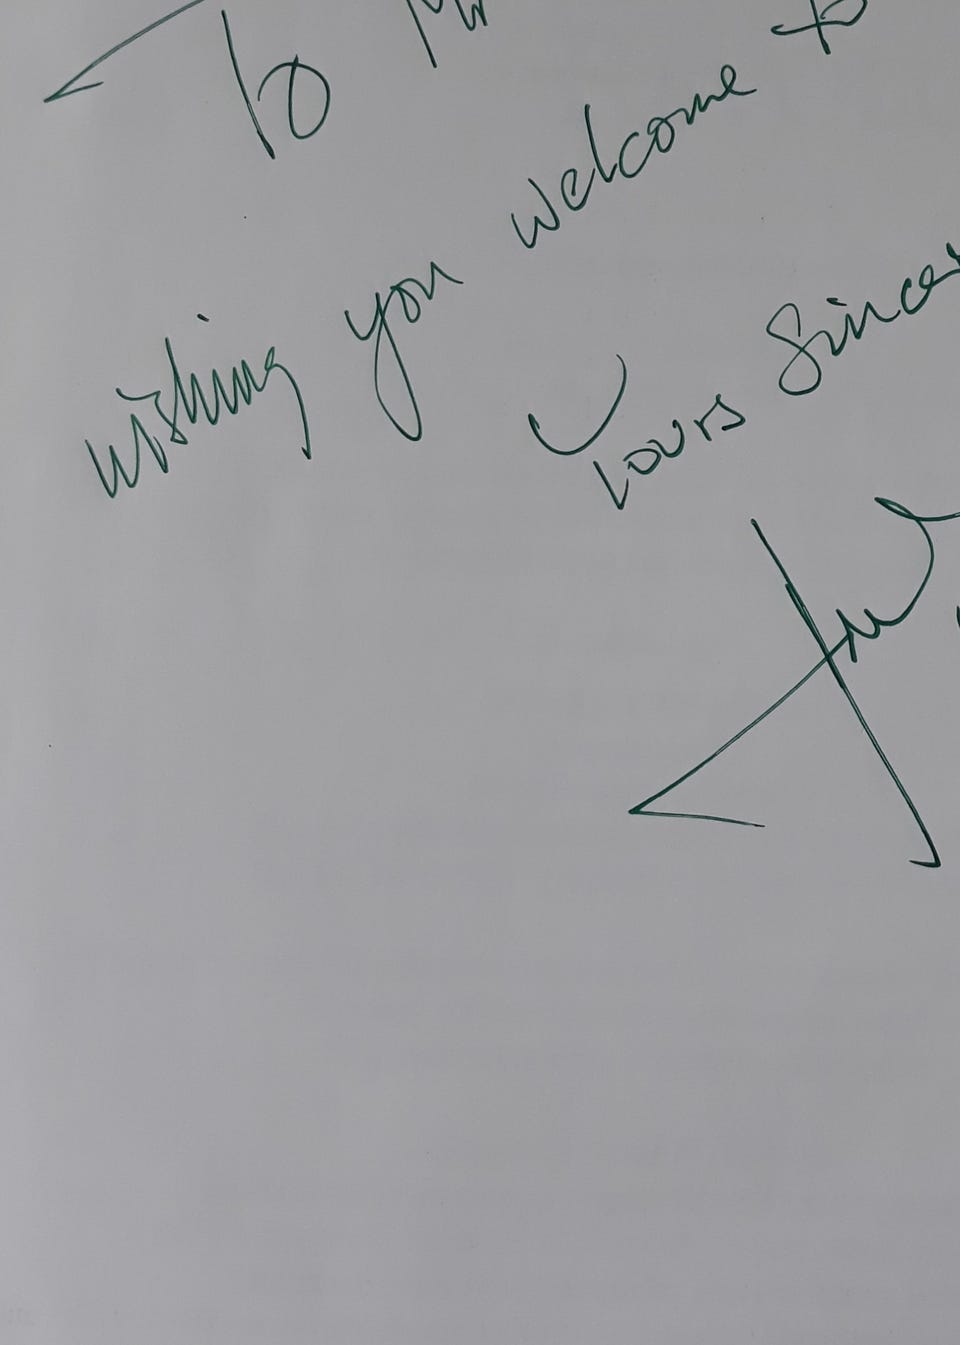 To Mr
wishing you welcome to
Yours Sincer